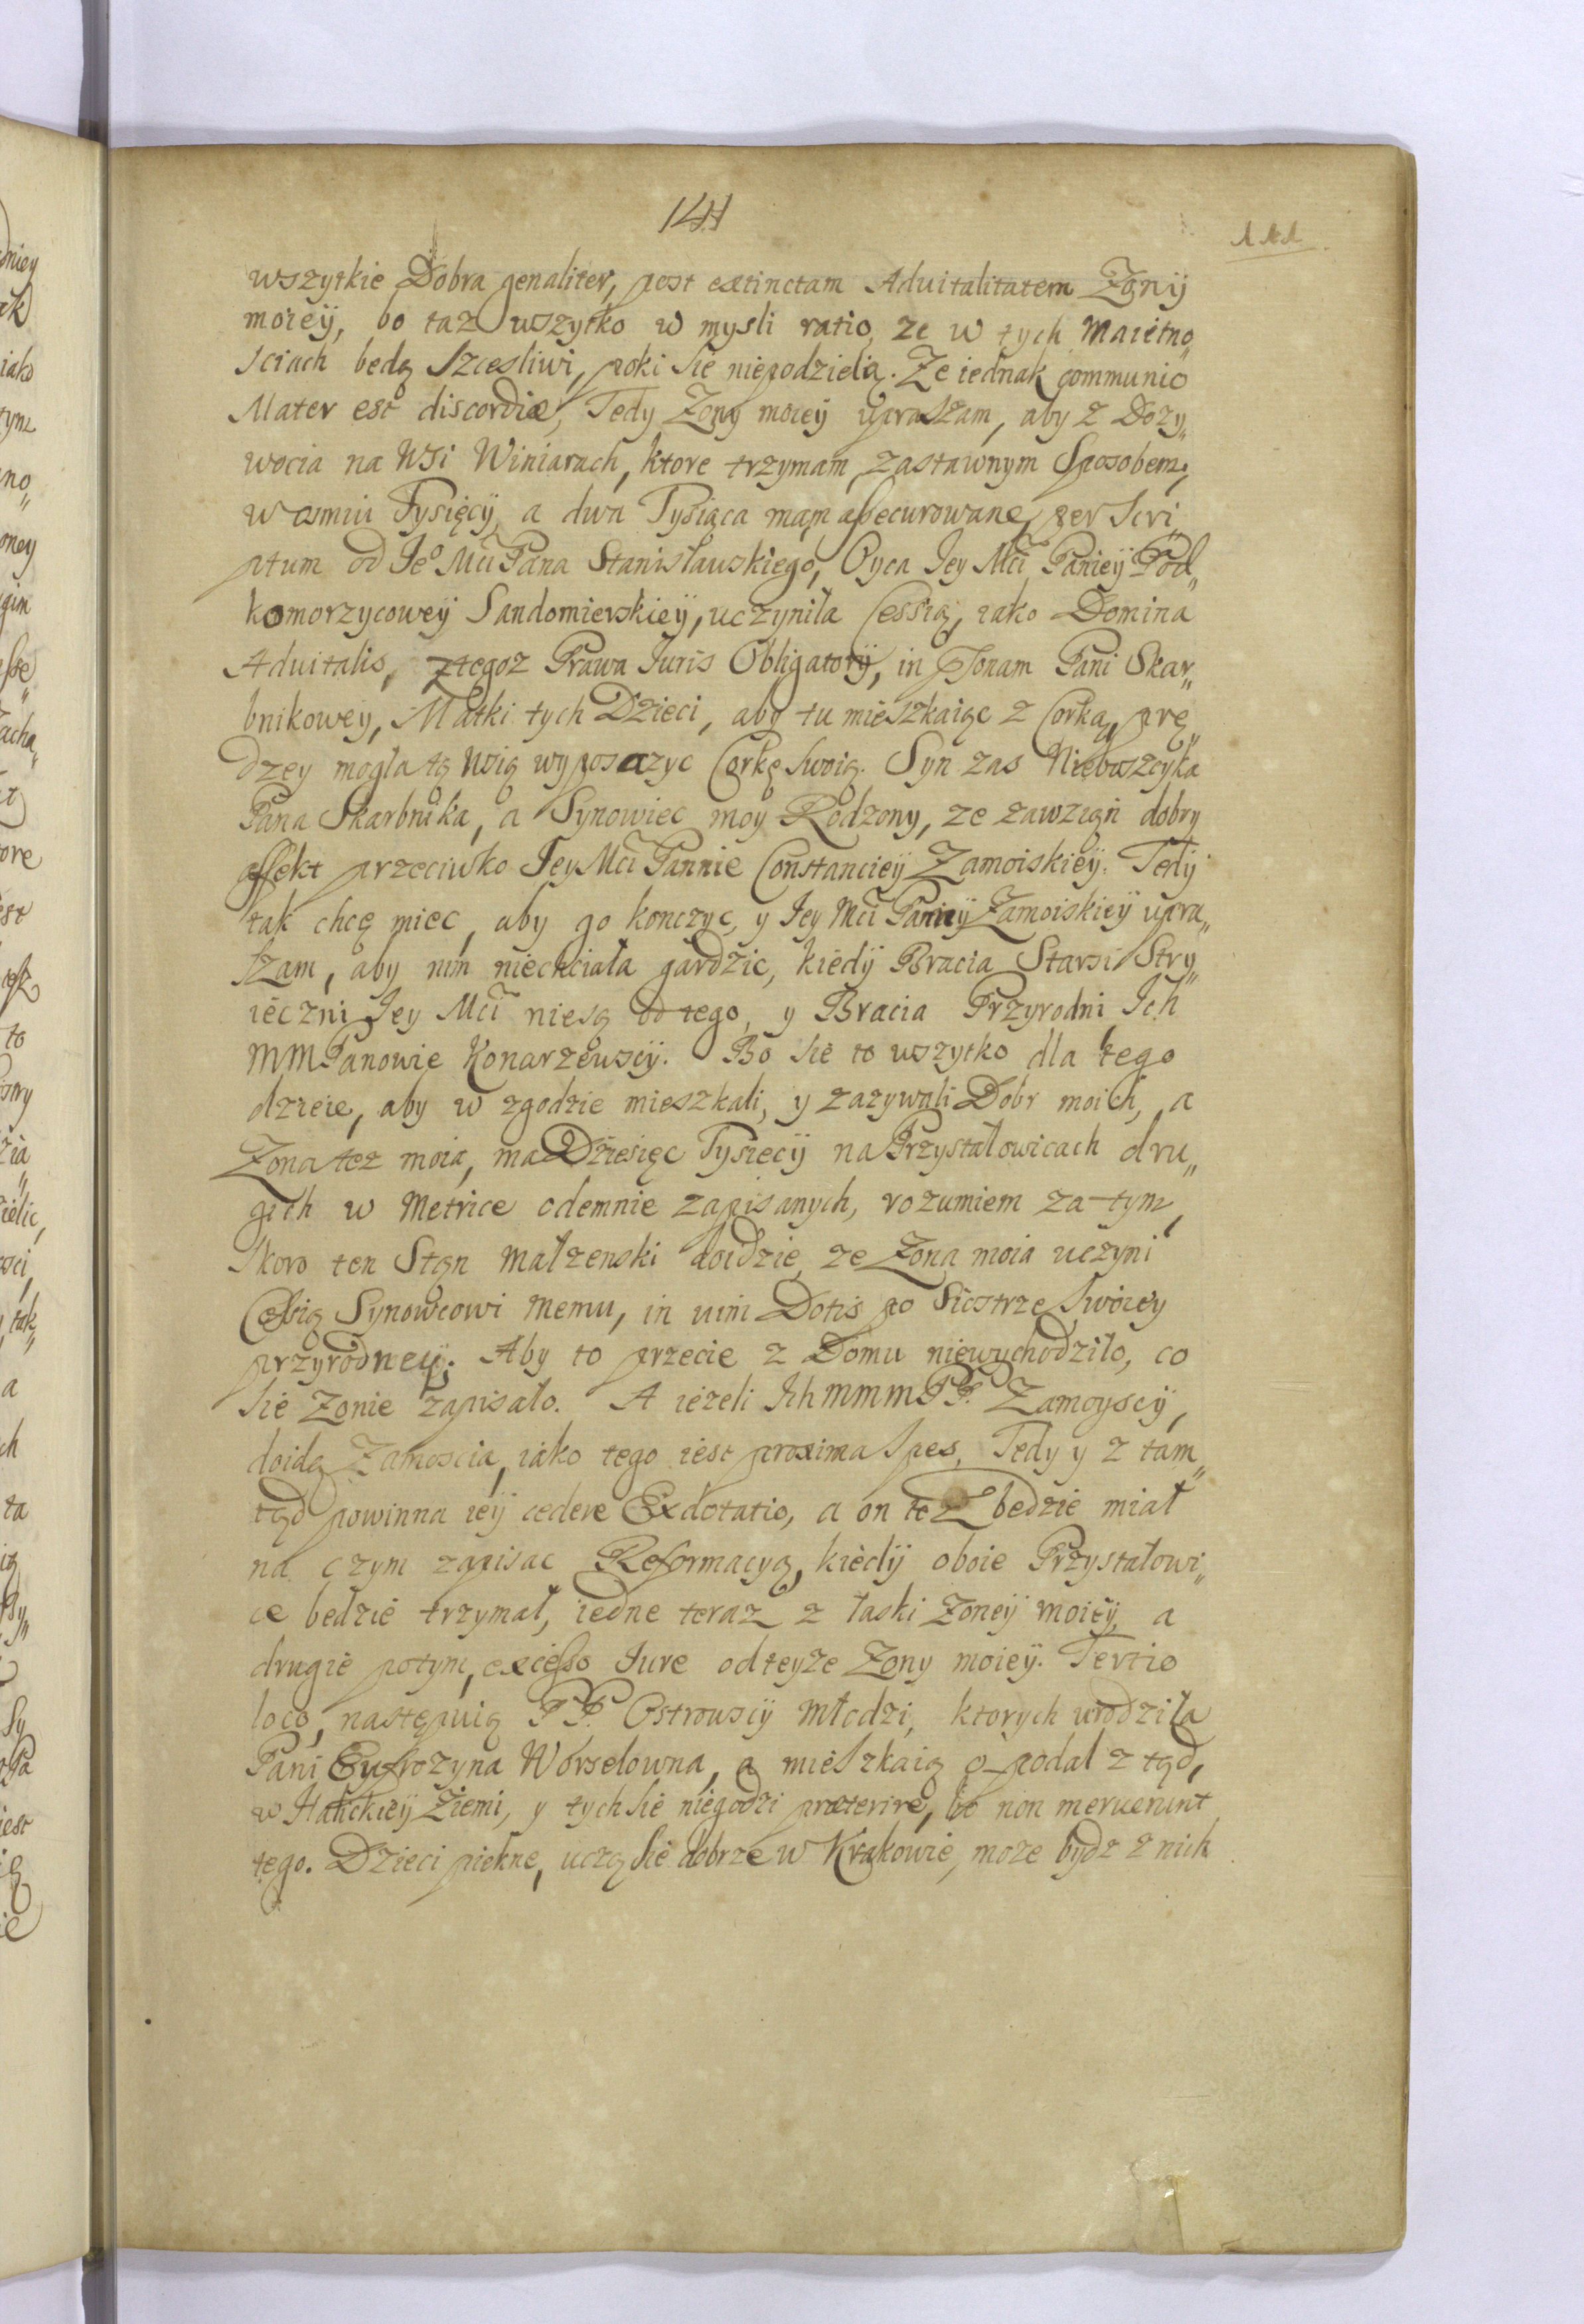 141
wszytkie Dobra genaliter, post extinctam Aduitalitatem Zony
moiey, bo taz wszytko w mysli ratio, ze w tych Maietno„
sciach będą Szcesliwi, poki sie niepodzielą. Ze iednak communio
Mater est discordiæ, Tedy Zony moiey upraszam, aby z Dozy„
wocia na Wsi Winiarach, ktore trzymam zastawnym Sposobem,
w osmiu Tysięcy, a dwa Tysiąca mam assecurowane, per Scri„
ptum od Jeo Mci Pana Stanisławskiego, Oyca Jey Mci Paniey Pod„
komorzycowey Sandomierskiey, uczyniła Cessią, iako Domina
Aduitalis, ztegoz Prawa Iuris Obligatorij, in psonam Pani Skar„
bnikowey, Matki tych Dzieci, aby tu mieszkaiąc z Corką, prę„
dzey mogła tą Wsią wyposazyc Corkę swoią. Syn zas Niebuszcyka
Pana Skarbnika, a Synowiec moy Rodzony, ze zawziął dobry
affekt przeciwko Jey Mci Pannie Constanciey Zamoiskiey. Tedy
tak chcę miec, aby go konczyc, y Jey Mci Paniey Zamoiskiey upra„
szam, aby nim niechciała gardzic, kiedy Bracia Starsi Stry„
ieczni Jey Mci niesą od tego, y Bracia Przyrodni Ich
MMPanowie Konarzewscy. Bo sie to wszytko dla tego
dzieie, aby w zgodzie mieszkali, y zazywali Dobr moich, a
Zona tez moia, ma Dziesięc Tysięcy na Przystałowicach dru„
gich w Metrice odemnie zapisanych, rozumiem za-tym,
skoro ten Stąn Małzenski doidzie, ze Zona moia uczyni
Cessią Synowcowi Memu, in uim Dotis po Siostrze Swoiey
przyrodney. Aby to przecie z Domu niewychodziło, co
sie Zonie zapisało. A iezeli Ich MMMPP. Zamoyscy,
doidą Zamoscia, iako tego iest proxima Spes, Tedy y z tam„
tąd powinna iey cedere Exdotatio, a on tez bedzie miał
na czym zapisac Reformacyą, kiedy oboie Przystałowi„
ce bedzie trzymał, iedne teraz z łaski Zoney moiey, a
drugie potym, ex cesso Iure od teyze Zony moiey. Tertio
loco, nastepuią PP. Ostrowscy Młodzi, ktorych urodziła
Pani Eufrozyna Worselowna, a mieszkaią o-podal z tąd,
w Halickiey Ziemi, y tych sie niegodzi præterire, bo non meruerunt
tego. Dzieci piekne, uczą sie dobrze w Krakowie, moze bydz z nich